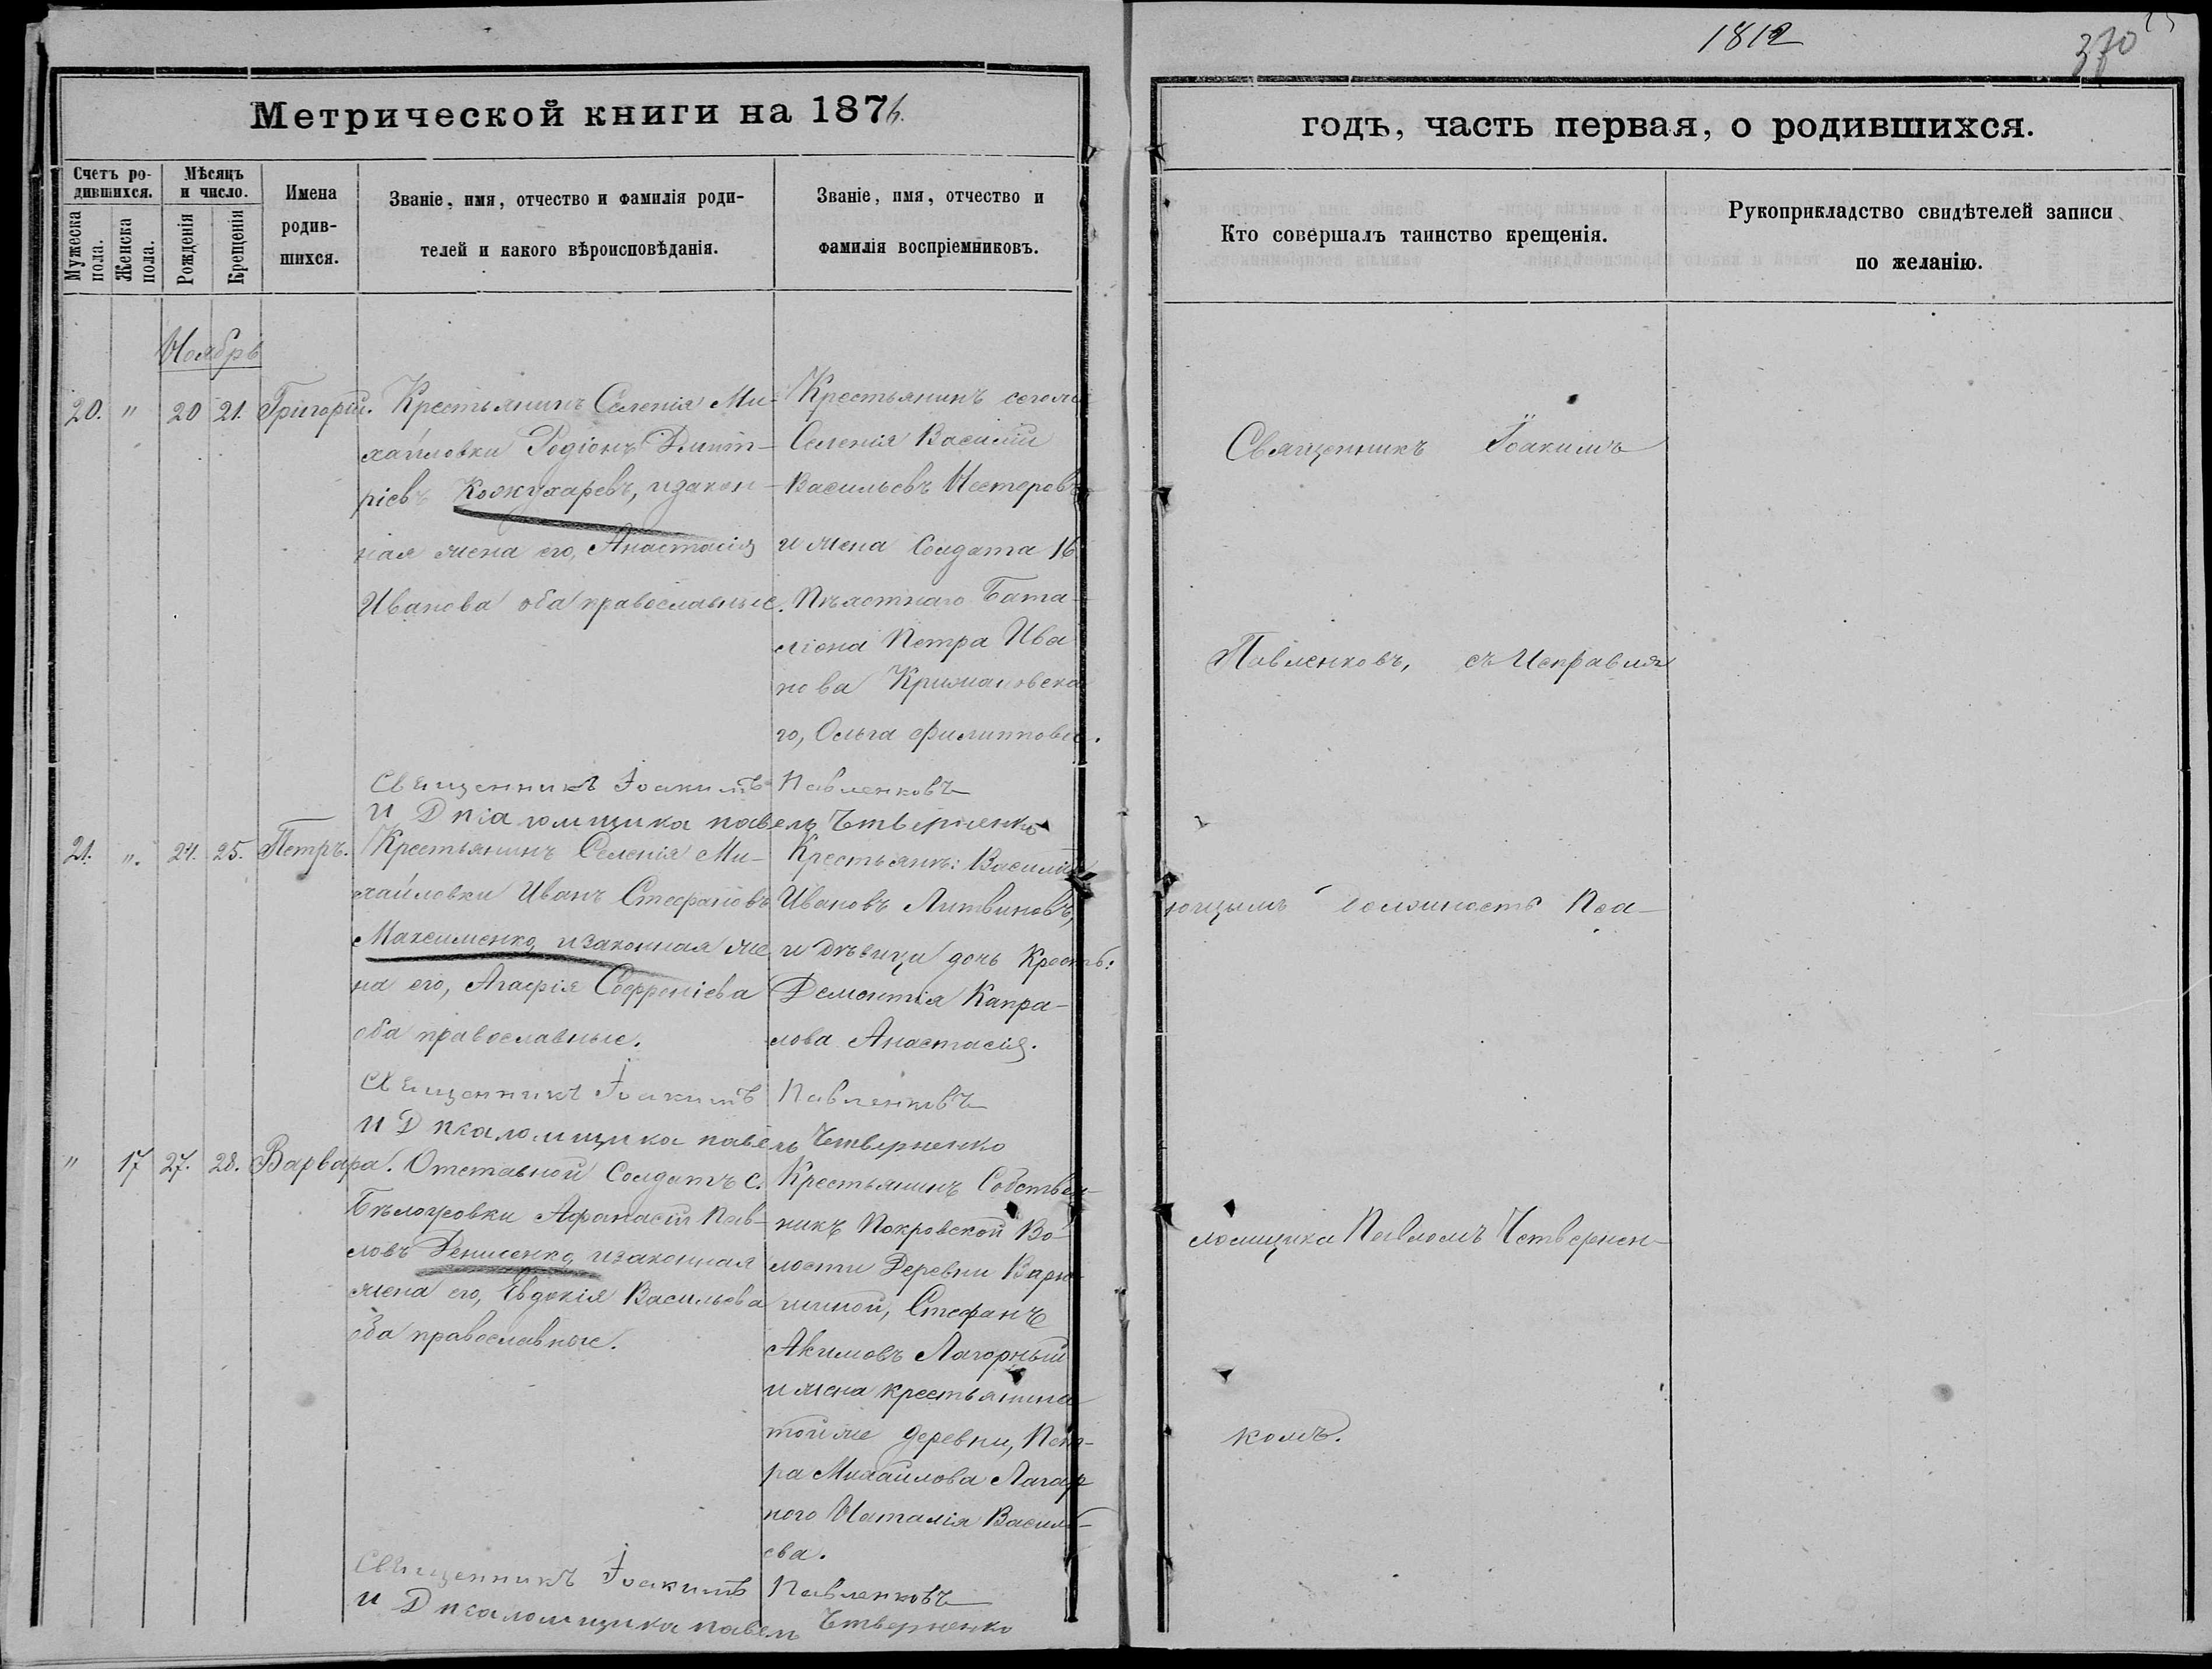 1812
370
Метрической книги на 1876.
годъ, часть первая, о родившихся.
Счетъ ро-
дившихся.
Мужеска пола.
Женска пола.
Мѣсяцъ
и число.
Рожденія
Крещенія
Имена
родив-
шихся.
Званіе, имя, отчество и фамилія роди-
телей и какого вѣроисповѣданія.
Званіе, имя, отчество и
фамилія воспріемниковъ.
Кто совершалъ таинство крещенія.
Рукоприкладство свидѣтелей записи
по желанію.
Ноябрь
20. " 20 21. Григорій.
Крестьянинъ Селенія Ми-
хайловки Родіонъ Дмит-
ріевъ Кожухаревъ, изакон-
ная жена его, Анастасія
Иванова оба православные.
Крестьянинъ сегоже
Селенія Василій
Васильевъ Нестеровъ
и жена Солдата 16
Пѣхотнаго Бата-
ліона Петра Ива
нова Крижановска
го, Ольга Филиппова.
Священникъ Іоакимъ Павленковъ
И Д псаломщика павелъ Четверненко
21. ". 24. 25. Петръ.
Крестьянинъ Селенія Ми-
хайловки Иванъ Стефановъ
Максименко, изаконная же
на его, Агафія Евфреміева
оба православные.
Крестьянъ: Василій
Ивановъ Литвиновъ,
и дѣвица дочь Крестьь:
Дементія Капра-
лова Анастасія.
Священникъ Іоакимъ Павленковъ
И Д псаломщика павелъ Четверненко
" 17 27. 28. Варвара.
Отставной Солдатъ с.
Бѣлоусовки Афанасій Пав-
ловъ Денисенко, изаконная
жена его, Евдокія Васильева
оба православные.
Крестьянинъ Собствен-
никъ Покровской Во-
лости Деревни Варю-
шиной, Стефанъ
Акимовъ Лагорный
и жена крестьянина
тойже деревни, Пет-
ра Михайлова Лагор
ного Наталія Василь-
ева.
Священникъ Іоакимъ Павленковъ
И Д псаломщика павелъ Четверненко
Священникъ Іоакимъ
Павленковъ, съ Исправля
ющимъ должность Пса-
ломщика Павломъ Четвернен-
комъ.